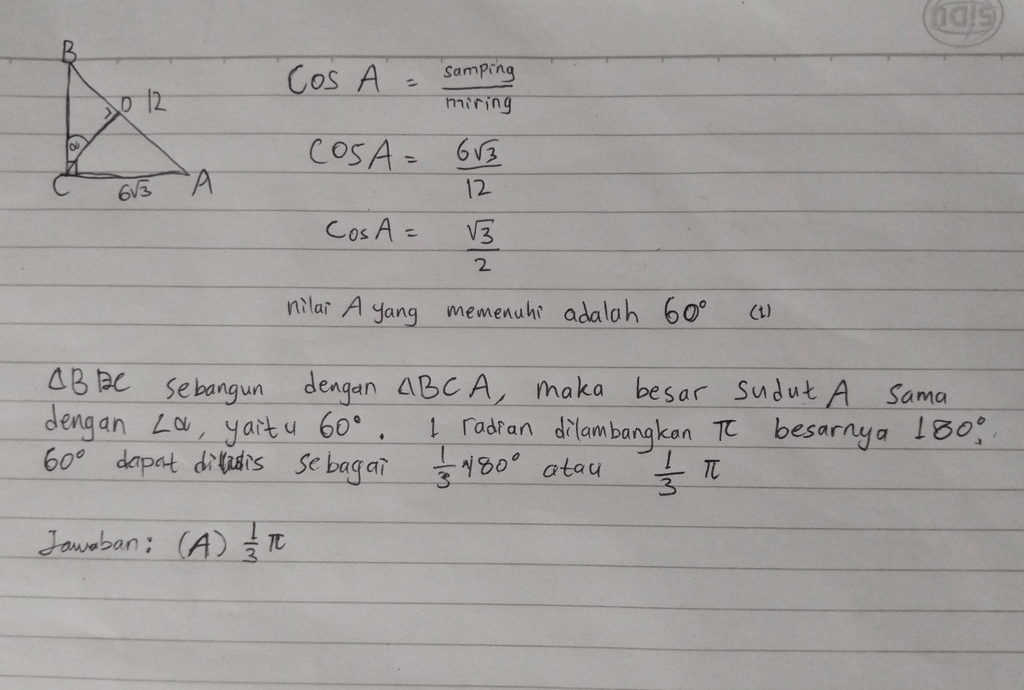 SIDU
B
D 12
α
C 6√3 A
Cos A = samping/miring
COS A = 6√3/12
Cos A = √3/2
nilai A yang memenuhi adalah 60° (1)
ΔBDC sebangun dengan ΔBCA, maka besar sudut A sama
dengan ∠α, yaitu 60°. 1 radian dilambangkan π besarnya 180°.
60° dapat ditulis sebagai 1/3 180° atau 1/3 π
Jawaban: (A) 1/3 π